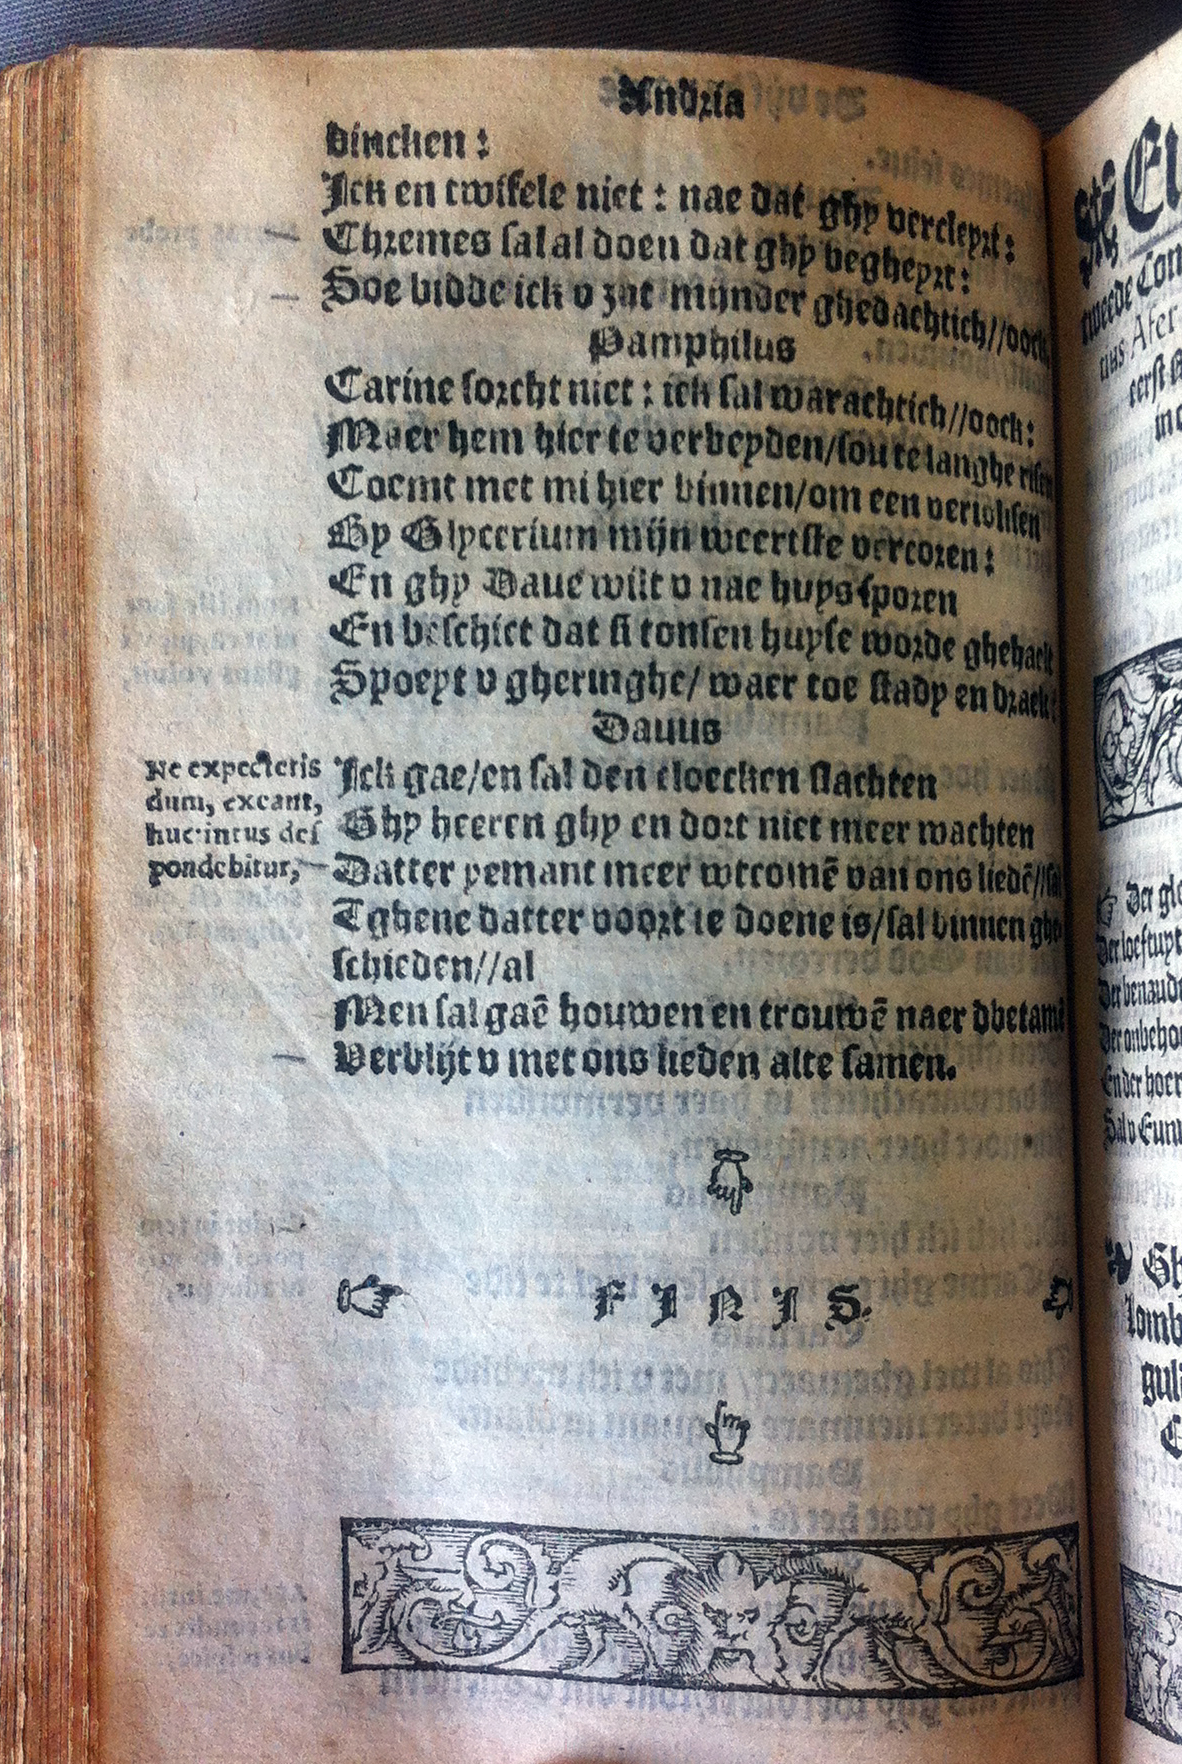 Andria
vincken:
Ick en twifele niet: nae dat ghy vercleyrt:
Chremes sal al doen dat ghy begheyrt:
Soe bidde ick v zyt mijnder ghedachtich//oock.
Pamphilus
Carine sorcht niet: ick sal warachtich//oock:
Maer hem hier te verbeyden/sou te langhe
Coemt met mi hier binnen/om een
By Glycerium mijn weertste vercoren:
En ghy Daue wilt v nae huys sporen
En beschict dat si tonsen huyse worde ghehaelt
Spoeyt v gheringhe/ waer toe stady en draelt:
Dauus
Ick gae/en sal den cloecken slachten
Ghy heeren ghy en dort niet meer wachten
Datter yemant meer wtcomē van ons liedē//sal
Tghene datter voort te doene is/sal binnen ghe
schieden//al
Men sal gaē houwen en trouwē naer dbetamē
Verblijt v met ons lieden alte samen.
Ne expectetis
dum, exeant,
huc: intus des
pondebitur,
FINIS.
tweede Com
rius Afer
eerst
Der glo
Der benaude
Der onbeho
Ender hoer
Sal v Eunu
Gh
Lomb
guli